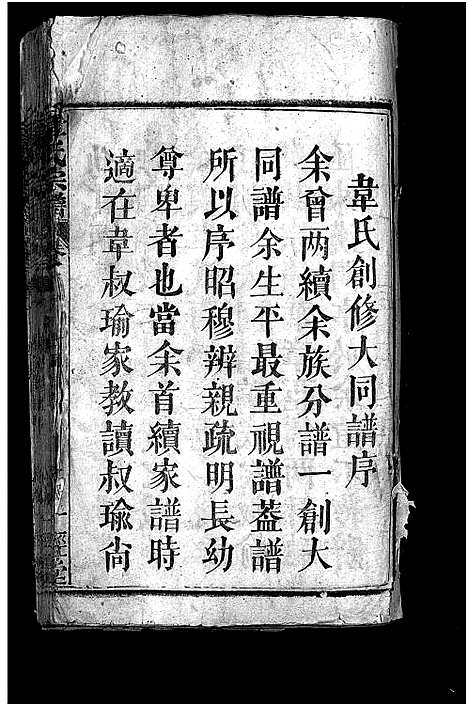 韋氏創修大同譜序
余曾两續余族分譜一創大
同譜余生平最重視譜葢譜
所以序昭穆辨親疏明長幼
尊卑者也當余首續家譜時
適在韋叔瑜家教讀叔瑜尙
韋氏宗譜
一經堂